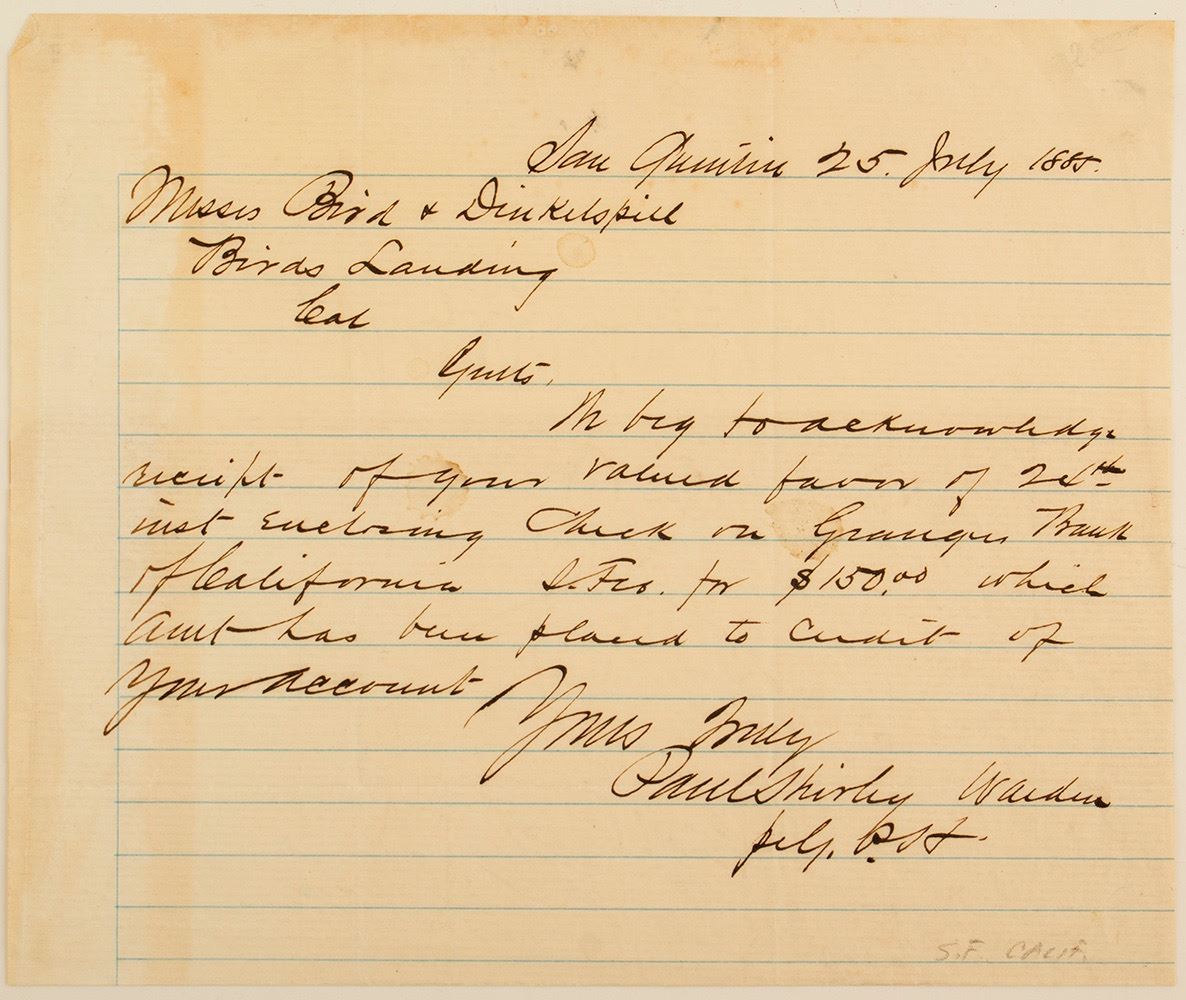 San Quentin 25. July 1885.
Messrs Bird & Dinkelspiel
Birds Landing
Cal
Gents,
We beg to acknowledge
receipt of your valued favor of 24th
inst enclosing Check on Grangers Bank
of California S. Fco. for $150.00 which
Amt has been placed to Credit of
Your account
Yours Truly
Paul Shirley Warden
S.F. CALIF.